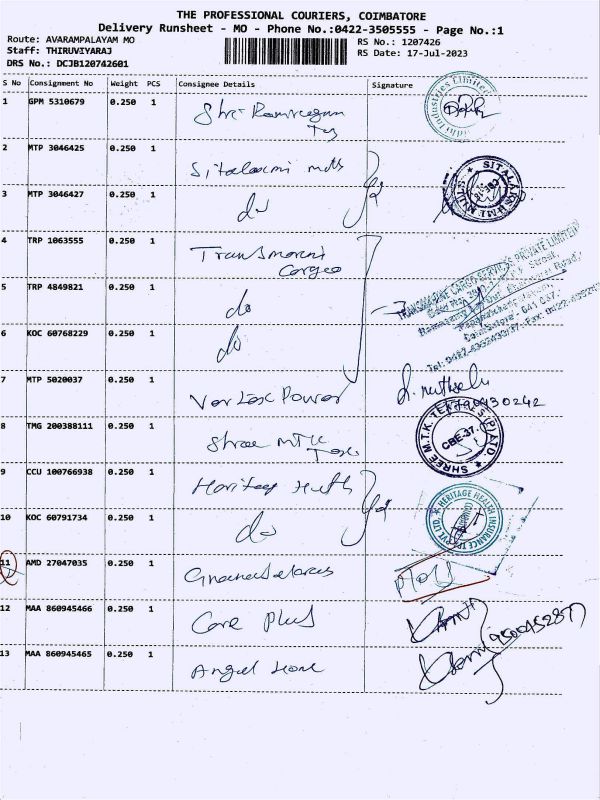 THE PROFESSIONAL COURIERS, COIMBATORE
Delivery Runsheet - MO - Phone No.:0422-3505555 - Page No.:1
Route: AVARAMPALAYAM MO
RS No.: 1207426
Staff: THIRUVIYARAJ
RS Date: 17-Jul-2023
DRS No.: DCJB120742601
S No Consignment No Weight PCS Consignee Details Signature
1 GPM 5310679 0.250 1 Shri
2 MTP 3046425 0.250 1 Sitalaxmi mills
SITALAKSHMI MILLS
3 MTP 3046427 0.250 1 do
4 TRP 1063555 0.250 1 Transmarine
Cargo
5 TRP 4849821 0.250 1 do
6 KOC 60768229 0.250 1 do
7 MTP 5020037 0.250 1 Vertex Power
8 TMG 200388111 0.250 1 Shree MTK
Tex
SHREE M.T.K. TEXTILES (P) LTD.
CBE-37.
9 CCU 100766938 0.250 1 Heritage Health
HERITAGE HEALTH INSURANCE TPA PVT. LTD.
10 KOC 60791734 0.250 1 do
11 AMD 27047035 0.250 1
12 MAA 860945466 0.250 1 Care Plus
13 MAA 860945465 0.250 1 Angel Home